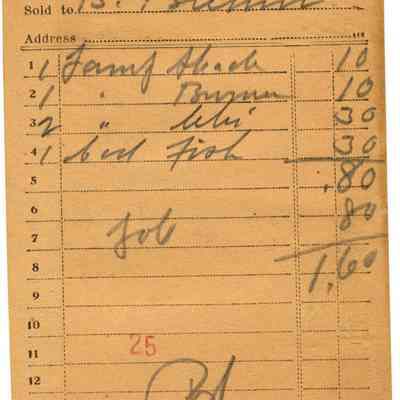 Sold to B.
Address
1 1 Lamp Shade 10
2 1 " Burner 10
3 2 " 30
4 1 Cod Fish 30
5 .80
6 80
7 Job
8 1.60
9
10
11 25
12